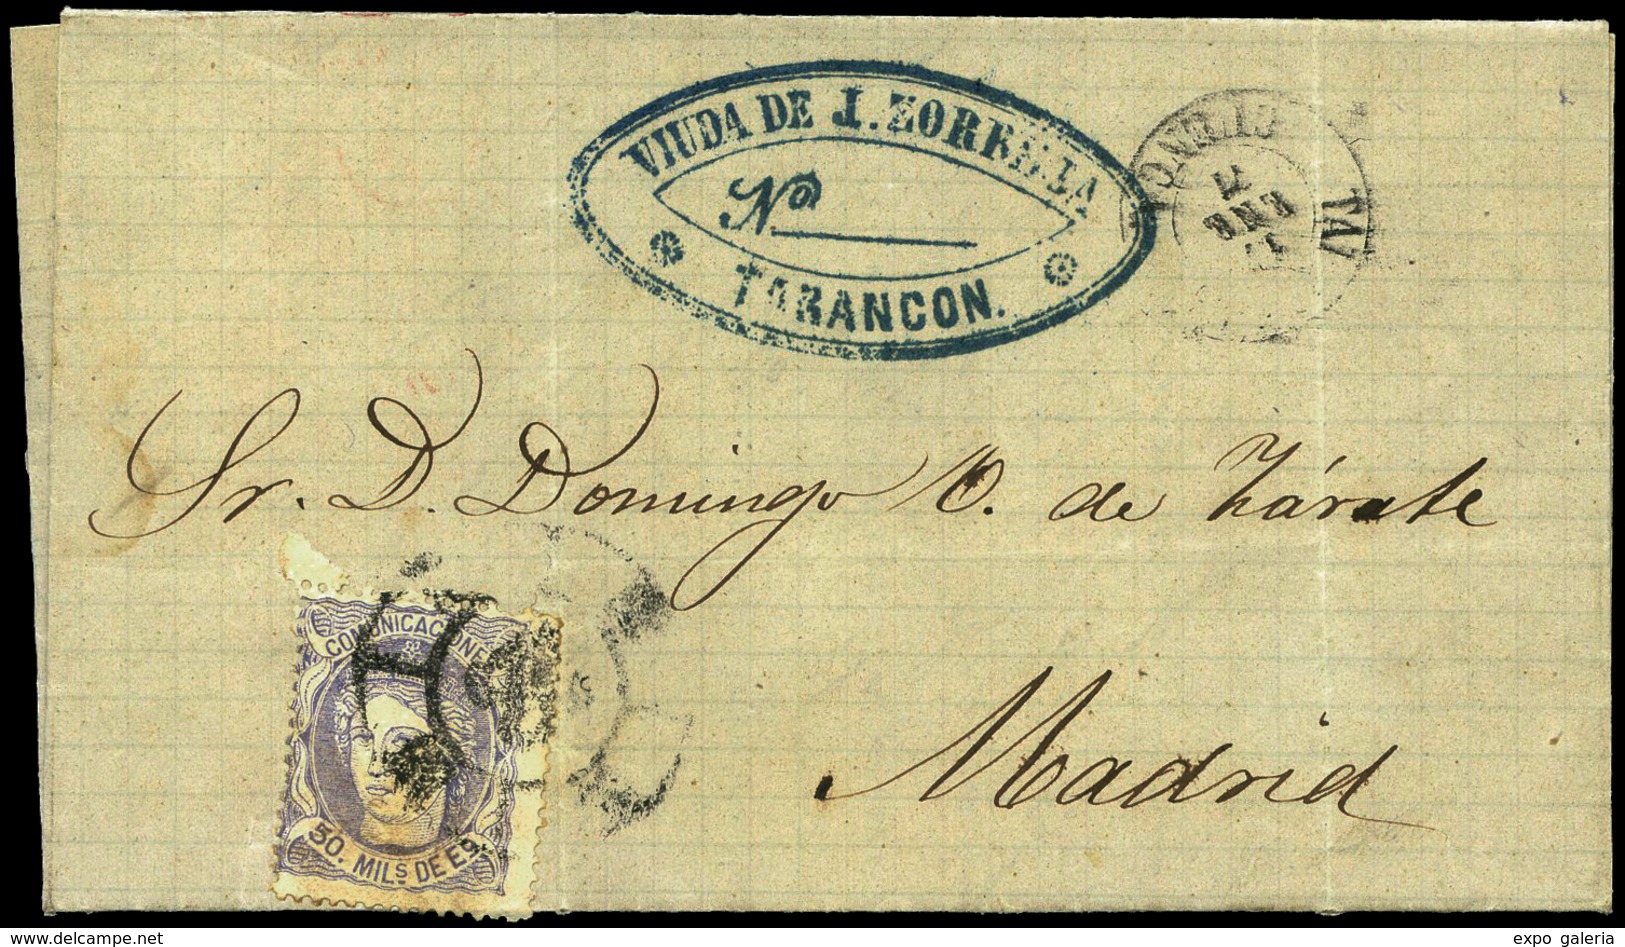 VIUDA DE J. ZORRILLA
Nº
TARANCON.
ENE
71
Sr. D. Domingo O. de Zárate
Madrid
COMUNICACIONES
50. MILS DE ES
www.delcampe.net
expo galeria